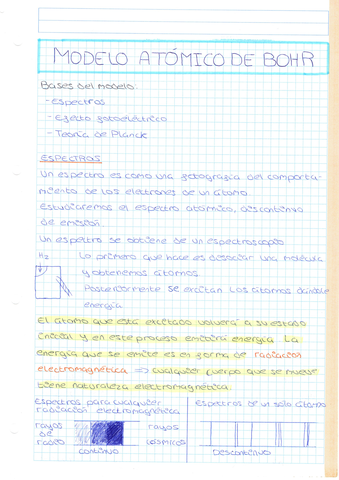 MODELO ATÓMICO DE BOHR
Bases del modelo:
- espectros
- Efecto fotoeléctrico
- Teoría de Planck
ESPECTROS
Un espectro es como una fotografía del comporta-
miento de los electrones de un átomo.
Estudiaremos el espectro atómico, discontinuo
de emisión.
Un espectro se obtiene de un espectroscopio
H2 Lo primero que hace es disociar una molécula
y obtenemos átomos.
Posteriormente se excitan los átomos dándole
energía
El átomo que está excitado volverá a su estado
inicial y en este proceso emitirá energía. La
energía que se emite es en forma de radiación
electromagnética => cualquier cuerpo que se mueve
tiene naturaleza electromagnética.
Espectros para cualquier
radiación electromagnética
rayos
de
radio
rayos
continuo
Espectros de un solo átomo
Discontinuo